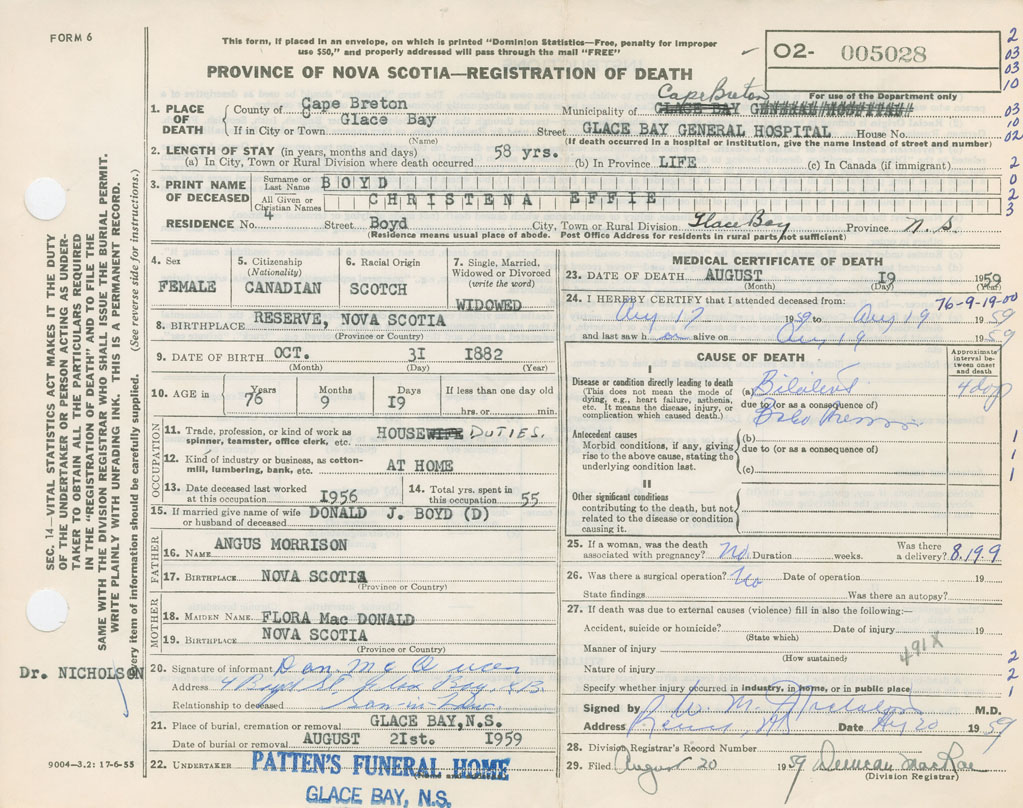 FORM 6
This form, if placed in an envelope, on which is printed "Dominion Statistics—Free, penalty for improper
use $50," and properly addressed will pass through the mail "FREE"
PROVINCE OF NOVA SCOTIA—REGISTRATION OF DEATH
O2- 005028
For use of the Department only
2
03
03
10
03
10
02
2
0
2
3
1. PLACE OF DEATH
County of Cape Breton
Municipality of Cape Breton GLACE BAY GENERAL HOSPITAL
If in City or Town Glace Bay Street GLACE BAY GENERAL HOSPITAL House No.
(Name) (If death occurred in a hospital or institution, give the name instead of street and number)
2. LENGTH OF STAY (in years, months and days)
(a) In City, Town or Rural Division where death occurred 58 yrs. (b) In Province LIFE (c) In Canada (if immigrant)
3. PRINT NAME OF DECEASED
Surname or Last Name BOYD
All Given or Christian Names CHRISTENA EFFIE
RESIDENCE No. 4 Street Boyd City, Town or Rural Division Glace Bay Province N.S.
(Residence means usual place of abode. Post Office Address for residents in rural parts not sufficient)
4. Sex
FEMALE
5. Citizenship
(Nationality)
CANADIAN
6. Racial Origin
SCOTCH
7. Single, Married, Widowed or Divorced
(write the word)
WIDOWED
8. BIRTHPLACE RESERVE, NOVA SCOTIA
(Province or Country)
9. DATE OF BIRTH OCT. 31 1882
(Month) (Day) (Year)
10. AGE in Years 76 Months 9 Days 19 If less than one day old
hrs. or min.
OCCUPATION
11. Trade, profession, or kind of work as
spinner, teamster, office clerk, etc. HOUSEWIFE DUTIES.
12. Kind of industry or business, as cotton-
mill, lumbering, bank, etc. AT HOME
13. Date deceased last worked
at this occupation 1956
14. Total yrs. spent in
this occupation 55
15. If married give name of wife
or husband of deceased DONALD J. BOYD (D)
FATHER
16. NAME ANGUS MORRISON
17. BIRTHPLACE NOVA SCOTIA
(Province or Country)
MOTHER
18. MAIDEN NAME FLORA Mac DONALD
19. BIRTHPLACE NOVA SCOTIA
(Province or Country)
20. Signature of informant Dan. Mc Queen
Address 4 Boyd St, Glace Bay, C.B.
Relationship to deceased Son-in-law
21. Place of burial, cremation or removal GLACE BAY, N.S.
Date of burial or removal AUGUST 21st. 1959
22. UNDERTAKER PATTEN'S FUNERAL HOME
GLACE BAY, N.S.
MEDICAL CERTIFICATE OF DEATH
23. DATE OF DEATH AUGUST 19 1959
(Month) (Day) (Year)
24. I HEREBY CERTIFY that I attended deceased from: 76-9-19-00
Aug 17 1959 to Aug 19 1959
and last saw h alive on Aug 19 1959
CAUSE OF DEATH
Approximate interval between onset and death
I
Disease or condition directly leading to death
(This does not mean the mode of
dying, e.g., heart failure, asthenia,
etc. It means the disease, injury, or
complication which caused death.)
(a) Bilateral 4 days
due to (or as a consequence of)
Antecedent causes
Morbid conditions, if any, giving
rise to the above cause, stating the
underlying condition last.
(b)
due to (or as a consequence of)
(c)
1
1
1
II
Other significant conditions
contributing to the death, but not
related to the disease or condition
causing it.
25. If a woman, was the death
associated with pregnancy? No Duration weeks. Was there
a delivery? 8.19.9
26. Was there a surgical operation? No Date of operation 19
State findings Was there an autopsy?
27. If death was due to external causes (violence) fill in also the following:—
Accident, suicide or homicide? Date of injury 19
(State which)
Manner of injury 491X
(How sustained)
Nature of injury
2
2
1
Specify whether injury occurred in industry, in home, or in public place
Signed by M.D.
Address Reserve, NS Date Aug 20 1959
28. Division Registrar's Record Number
29. Filed August 20 1959 Duncan MacRae
(Division Registrar)
SEC. 14—VITAL STATISTICS ACT MAKES IT THE DUTY
OF THE UNDERTAKER OR PERSON ACTING AS UNDER-
TAKER TO OBTAIN ALL THE PARTICULARS REQUIRED
IN THE "REGISTRATION OF DEATH" AND TO FILE THE
SAME WITH THE DIVISION REGISTRAR WHO SHALL ISSUE THE BURIAL PERMIT.
WRITE PLAINLY WITH UNFADING INK. THIS IS A PERMANENT RECORD.
Every item of information should be carefully supplied. (See reverse side for instructions.)
Dr. NICHOLSON
9004—3.2: 17-6-55